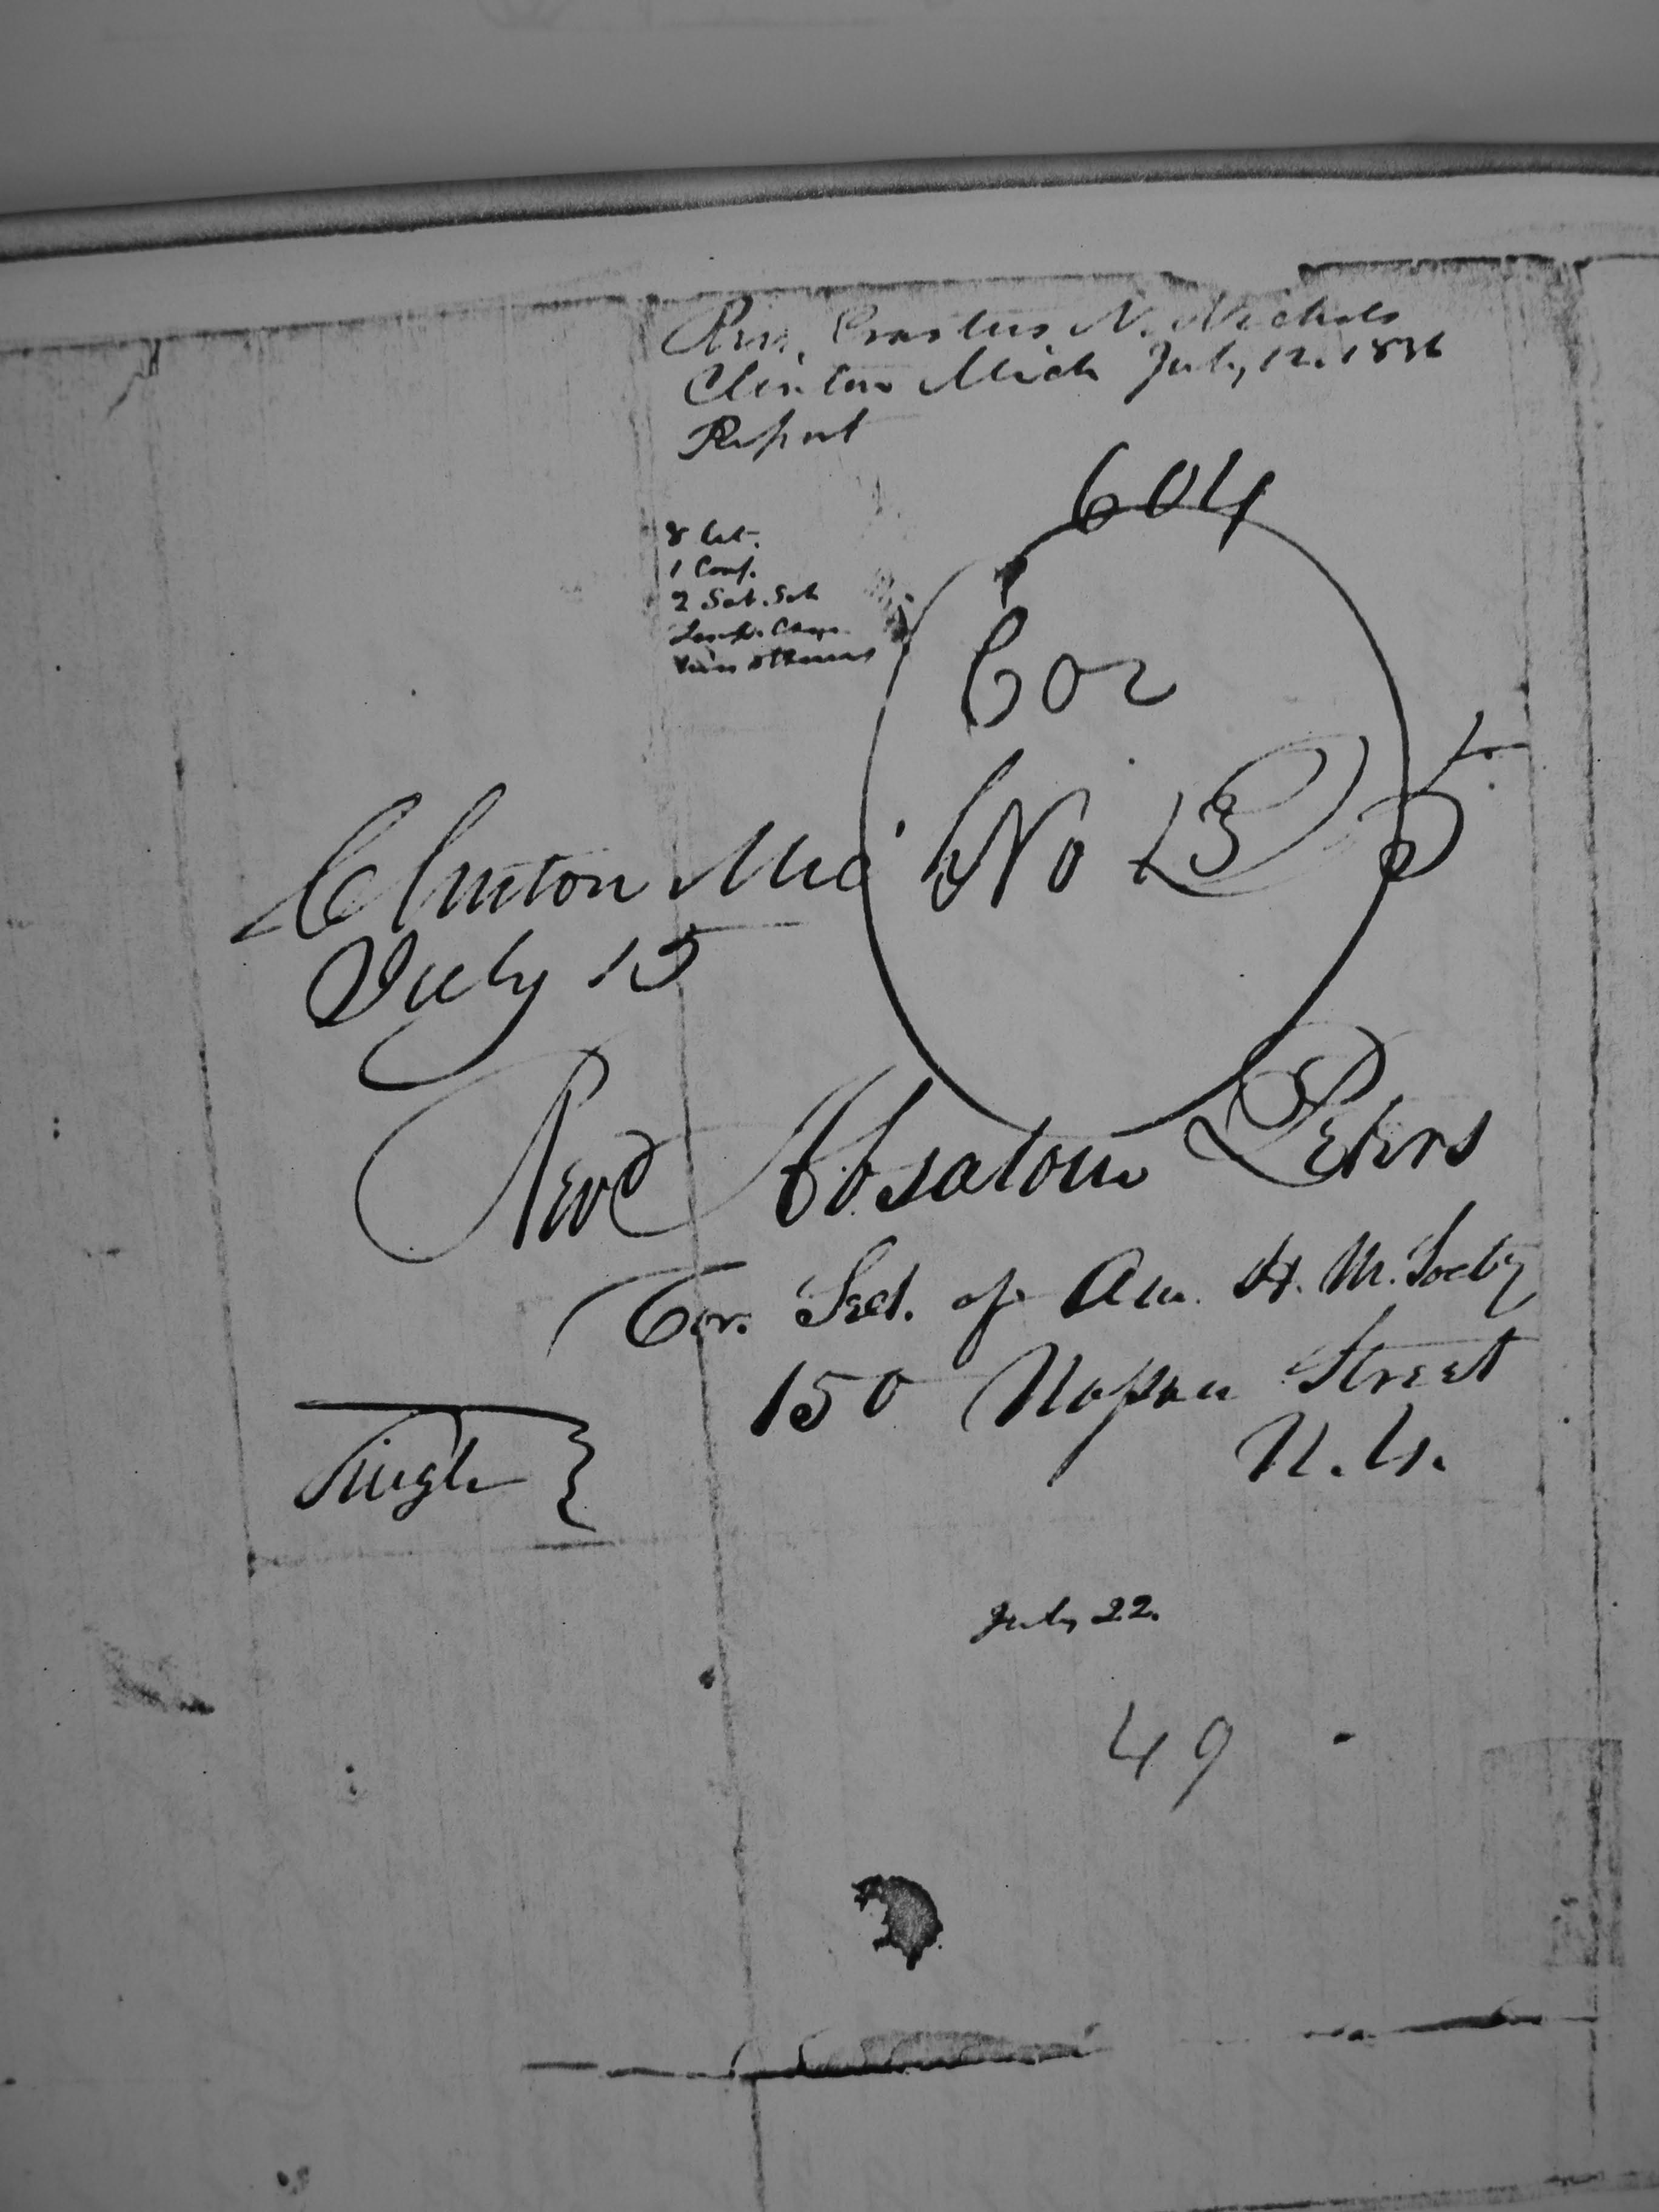 Rev. Erastus N. Nichols
Clinton Mich July 12. 1836
Report
604
8 
1 Conf.
2 Sab. Sch
Temp.
602
Clinton Mich No 13
July 15
25
Revd Absalom Peters
Cor. Sect. of Am. H. M. Socty
150 Nassau Street
N. Y.
Single
July 22.
49